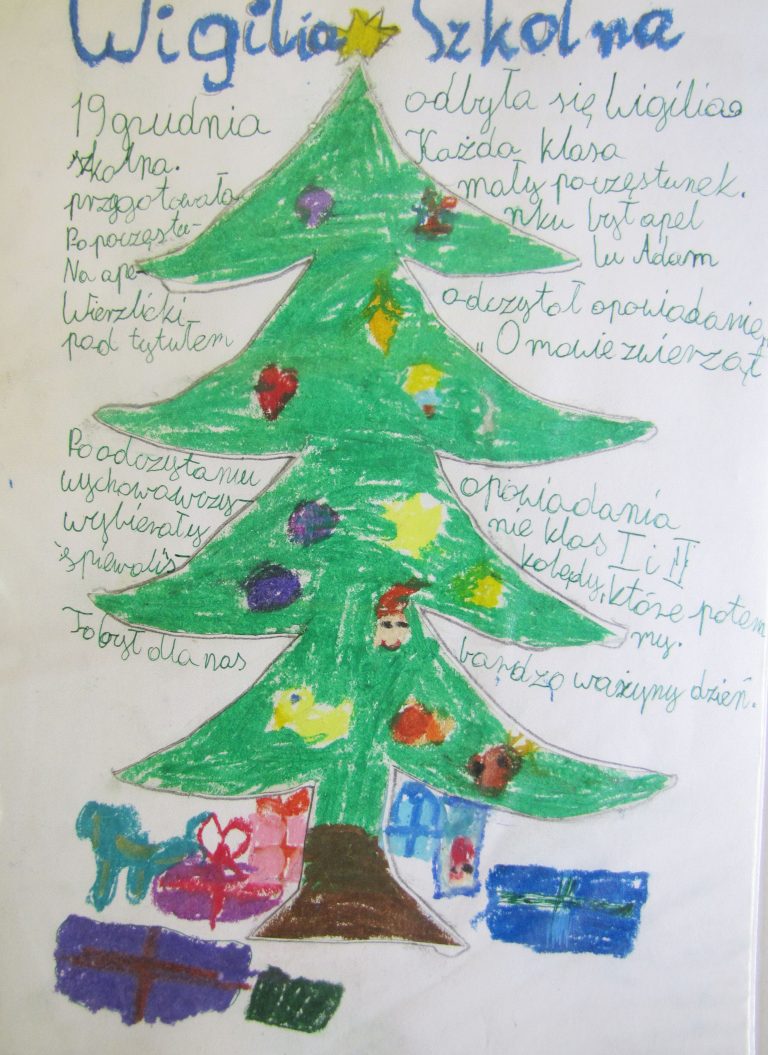 Wigilia Szkolna
19 grudnia odbyła się Wigilia
szkolna. Każda klasa
przygotowała mały poczęstunek.
Po poczęstu- nku był apel
Na ape- lu Adam
Wierzlicki- odczytał opowiadanie,
pod tytułem „O mowie zwierząt"
Po odczytaniu opowiadania
wychowawczy- nie klas I i II
wybierały kolędy, które potem
śpiewaliś- my.
To był dla nas bardzo ważyny dzień.